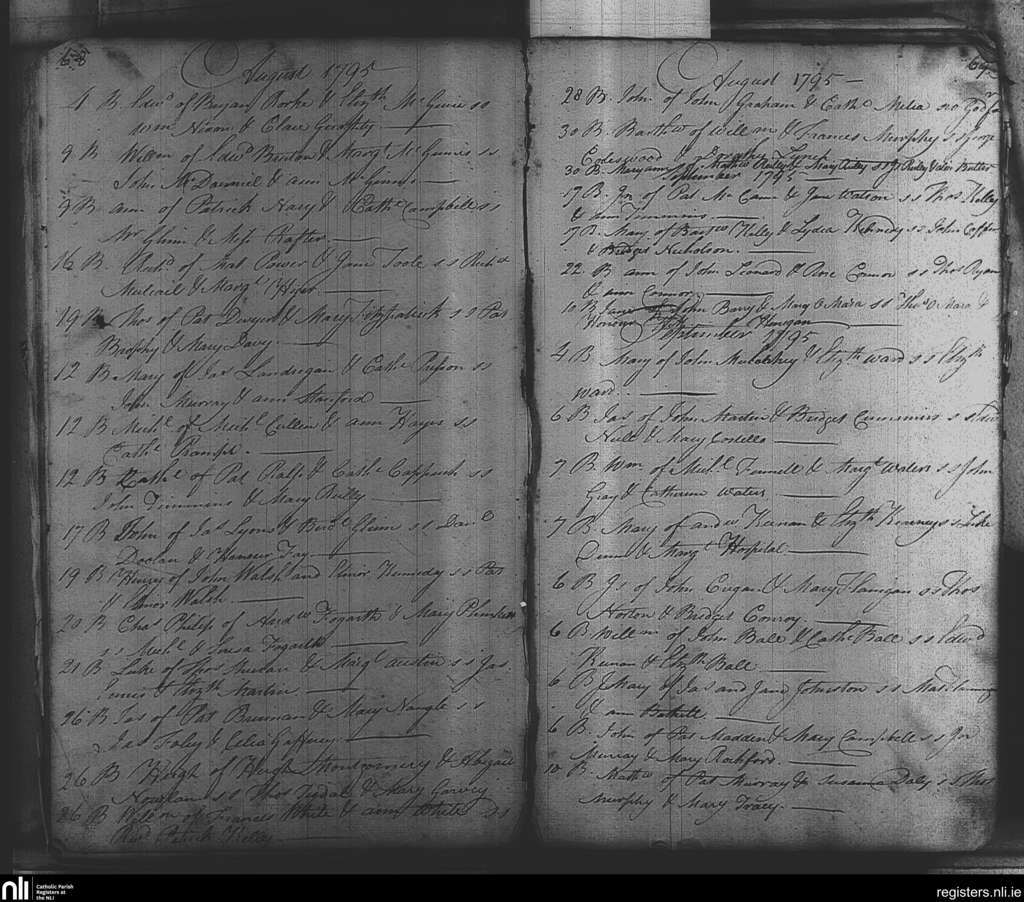 68
August 1795
4 B. Edwd of Bryan Rorke & Elizth McGuire ss
Wm Nixon & Clare Geraghty
9 B Willm of Edwd Burton & Margt McGuinis ss
John McDaniel & ann McGuinis
9 B ann of Patrick Nary & Cathe Campbell ss
Mr Glinn & Miss Rafter
16 B. Richd of Power & Jane Toole ss Richd
& Margt
19 B Thos of Pat Dwyer & Mary Fitzpatrick ss Pat
Brophy & Mary Davy
12 B Mary of Jas Landregan & Cathe ss
John Murray & ann Stanford
12 B Michl of Michl Cullen & ann Hayes ss
Cathe
12 B Cathe of Pat Ralph & Cathe ss
John Timmins & Mary Reilly
17 B John of Jas Lyons & Glinn ss Danl
Doolan & Honour Fay
19 B Henry of John Walsh and Elinor Kennedy ss Pat
& Elinor Walsh
20 B Chas Philip of Andw Fogarth & Mary
ss Michl & Fogarth
21 B Luke of Thos & Margt austin ss Jas
& Elizth Martin
26 B Jas of Pat Brennan & Mary Nangle ss
Jas Foley & Celia Gaffney
26 B Hugh of Hugh Montgomery & Abigail
ss Thos & Mary Garvey
26 B Willm of Francis White & ann White ss
Revd Patrick Kelly
69
August 1795
28 B. John of John Graham & Cathe Melia no Godfr
30 B. Barthw of Willm & Frances Murphy ss George
& Dorothy Lynch
30 B. Maryann of Mathw Reilly & Mary Reilly ss Js Reilly & Butler
September 1795
17 B. Jon of Pat McCann & Jane Watson ss Thos Kelly
& ann Timmins
17 B. Mary of & Lydia Kennedy ss John
& Bridget Nicholson
22. B ann of John Leonard & Rose Connor ss Thos Ryan
& ann Connor
10 B Jane of John Barry & Mary OMara ss OMara &
Honour Finegan
September 1795
4 B Mary of John & Elizth Ward ss Elizth
Ward
6 B Jas of John Martin & Bridget Cummins ss
& Mary Costello
7 B Wm of Michl Fennell & Margt Waters ss John
Gray & Catherine Waters
7 B Mary of andw Keenan & Elizth Kenny ss Luke
Dunn & Margt Hospital
6 B Js of John & Mary Flanigan ss Thos
Horton & Bridget Conroy
6 B Willm of John Ball & Cathe Ball ss Edwd
Keenan & Elizth Ball
6 B Mary of Jas and Jane Johnston ss
& ann
6 B. John of Pat Madden & Mary Campbell ss Jon
Murray & Mary Rochford
10 B. Mathw of Pat Murray & Susanna Daly ss Thos
Murphy & Mary Tracy
nli
Catholic Parish
Registers at
the NLI
registers.nli.ie